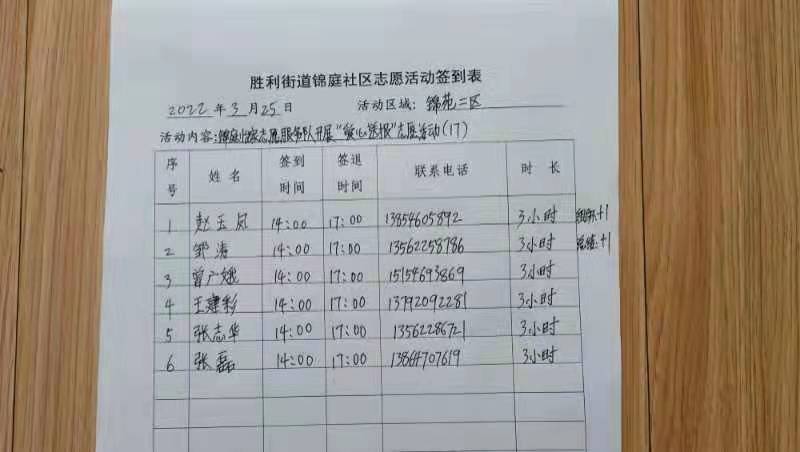 胜利街道锦庭社区志愿活动签到表
2022年3月25日 活动区域: 锦苑二区
活动内容: 锦庭 志愿服务队开展"爱心送报"志愿活动(17)
序号 姓名 签到时间 签退时间 联系电话 时长
1 赵玉凤 14:00 17:00 13854605892 3小时 组织+1
2 邹涛 14:00 17:00 13562258786 3小时 总结+1
3 曾广娥 14:00 17:00 15154693869 3小时
4 王建彩 14:00 17:00 13792092281 3小时
5 张志华 14:00 17:00 13562286721 3小时
6 张磊 14:00 17:00 13864707619 3小时